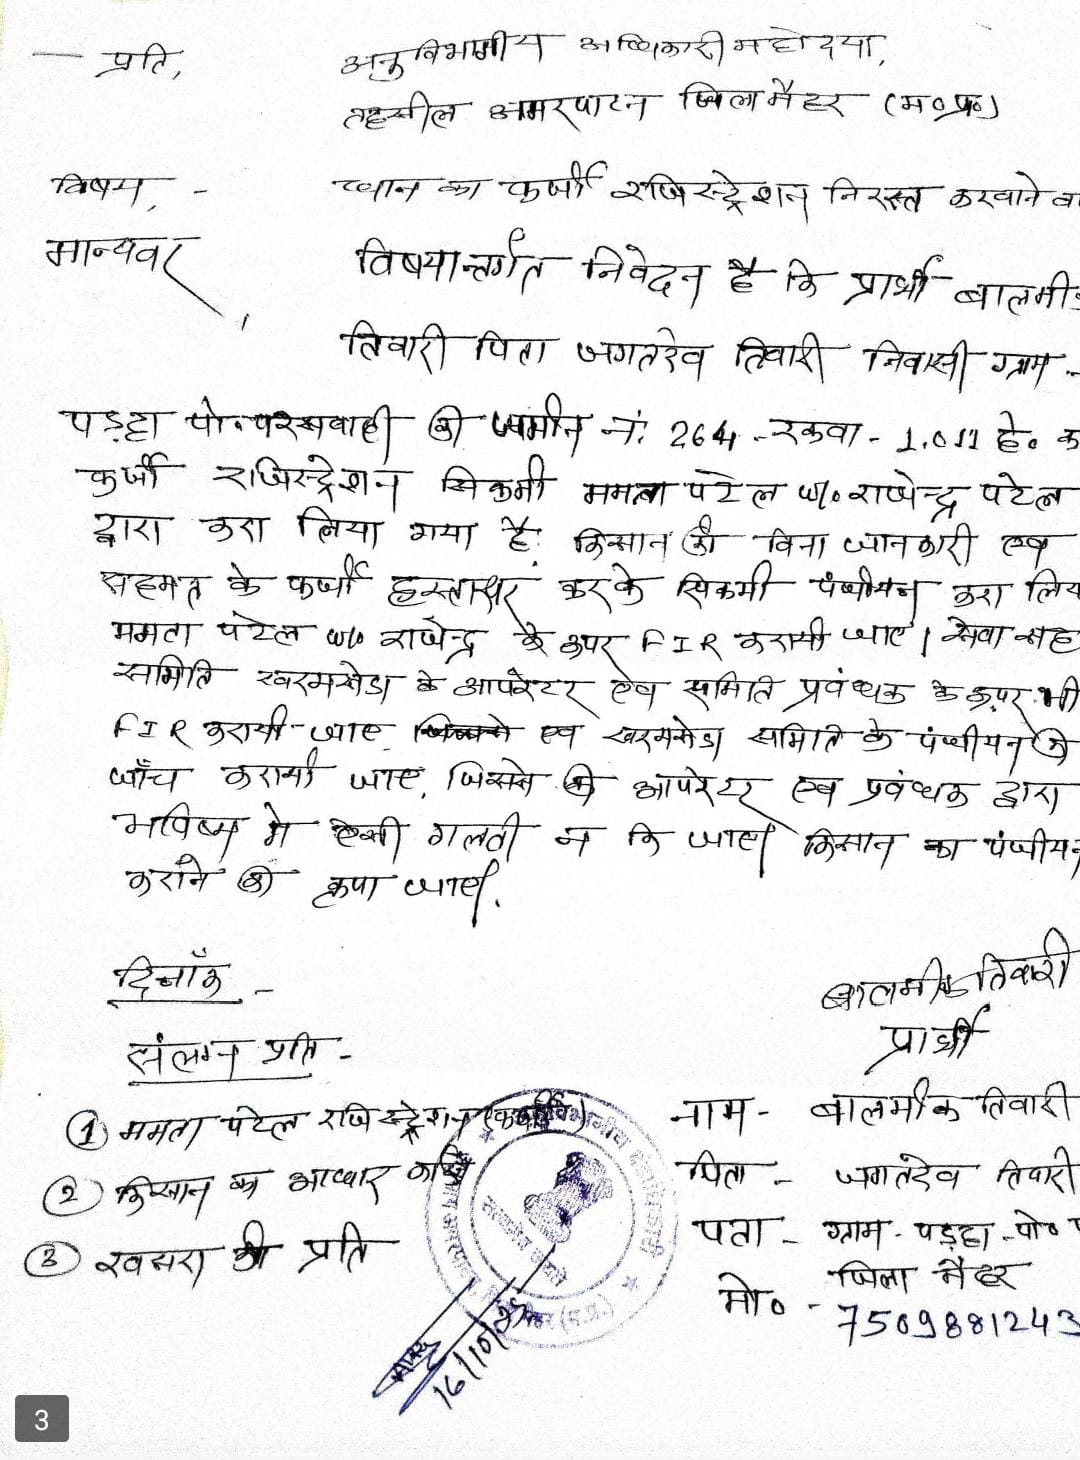 प्रति,
अनुविभागीय अधिकारी महोदया,
तहसील अमरपाटन जिला मैहर (म०प्र०)
विषय, - ध्यान का फर्जी रजिस्ट्रेशन निरस्त करवाने
मान्यवर,
विषयान्तर्गत निवेदन है कि प्रार्थी बालमी
तिवारी पिता जगतदेव तिवारी निवासी ग्राम -
पड़हा पो. परसवाही की जमीन नं. 264 - रकवा - 1.011 हे० क
फर्जी रजिस्ट्रेशन सिकमी ममता पटेल w/o राजेन्द्र पटेल
द्वारा करा लिया गया है. किसान की बिना जानकारी एव
सहमत के फर्जी हस्ताक्षर करके सिकमी पंजीयन करा लिय
ममता पटेल w/o राजेन्द्र के ऊपर FIR करायी जाए। सेवा सह
समिति खरमखेडा के आपरेटर एव समिति प्रवंधक के ऊपर भी
FIR करायी जाए एव खरमखेडा समिति के पंजीयन की
जाँच करायी जाए, जिससे की आपरेटर एव प्रवंधक द्वारा
भविष्य मे ऐसी गलती न कि जाए। किसान का पंजीयन
कराने की कृपा जाए।
दिनाँक -
बालमीक तिवारी
प्रार्थी
संलग्न प्रति -
① ममता पटेल रजिस्ट्रेशन
② किसान का आधार कार्ड
③ खसरा की प्रति
नाम - बालमीक तिवारी
पिता - जगतदेव तिवारी
पता - ग्राम - पड़हा - पो०
जिला मैहर
मो० - 7509881243
सत्यमेव जयते
16/10/25
3